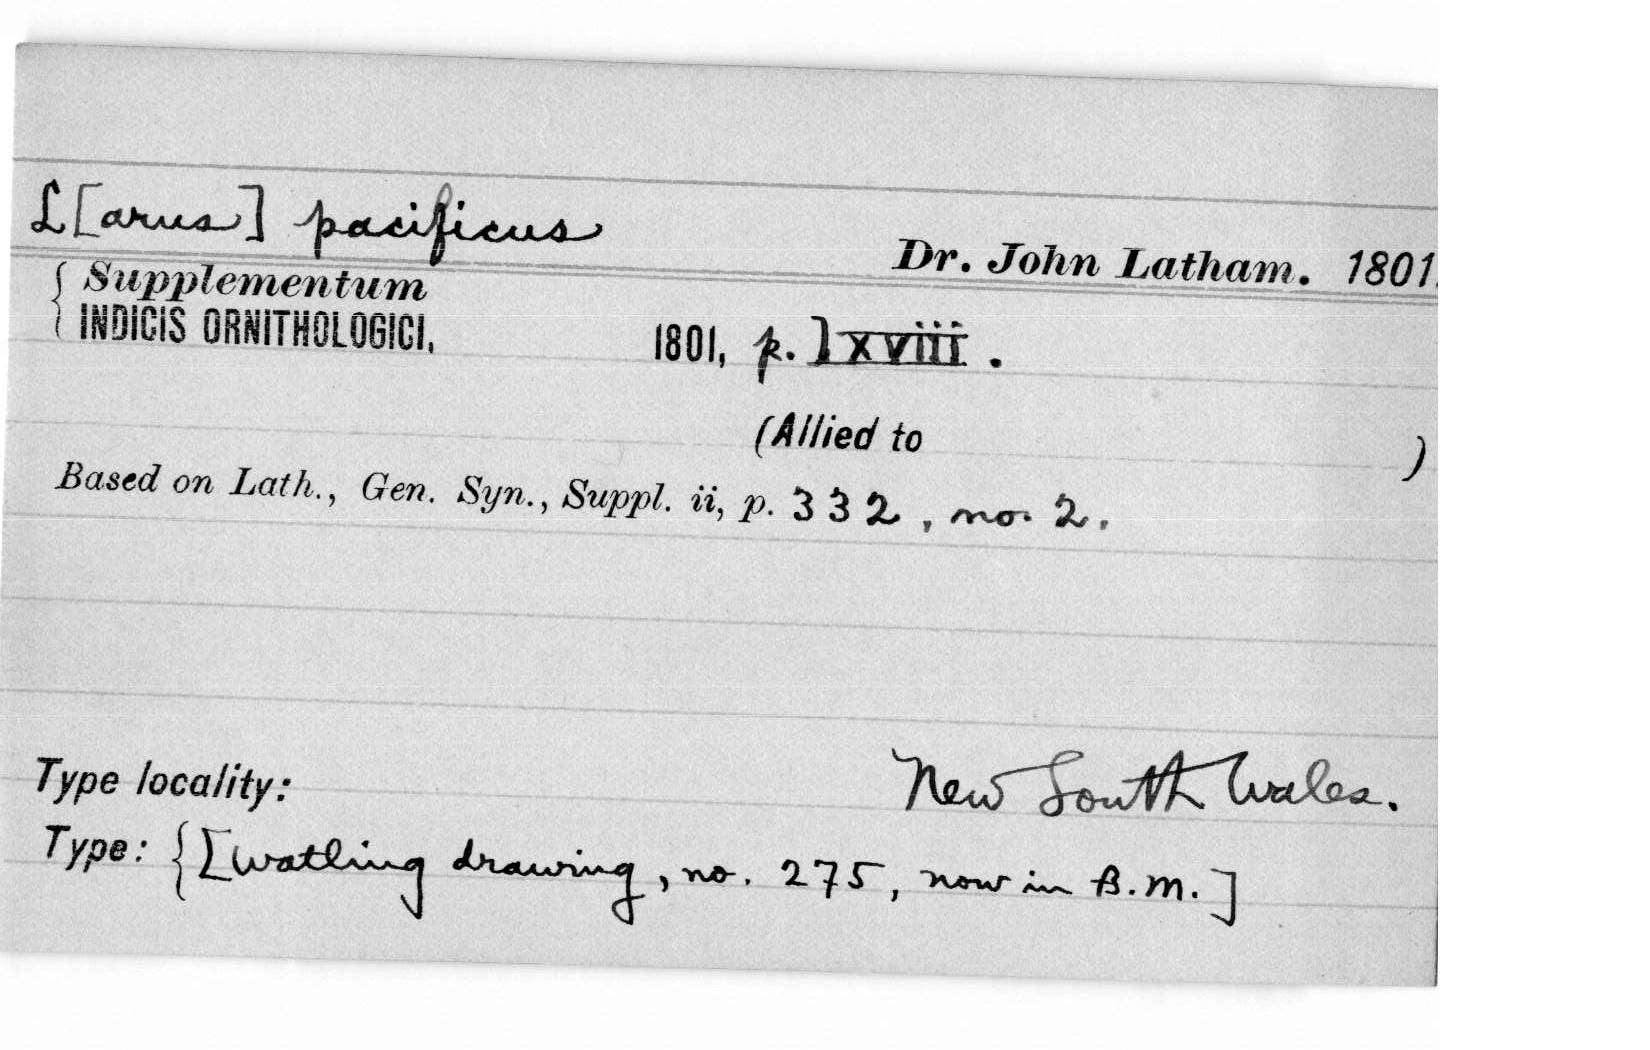 L[arus] pacificus
Dr. John Latham. 1801.
{ Supplementum
INDICIS ORNITHOLOGICI.
1801, p. lxviii .
(Allied to )
Based on Lath., Gen. Syn., Suppl. ii, p. 332, no. 2.
Type locality: New South Wales.
Type: {[Watling drawing, no. 275, now in B.M.]